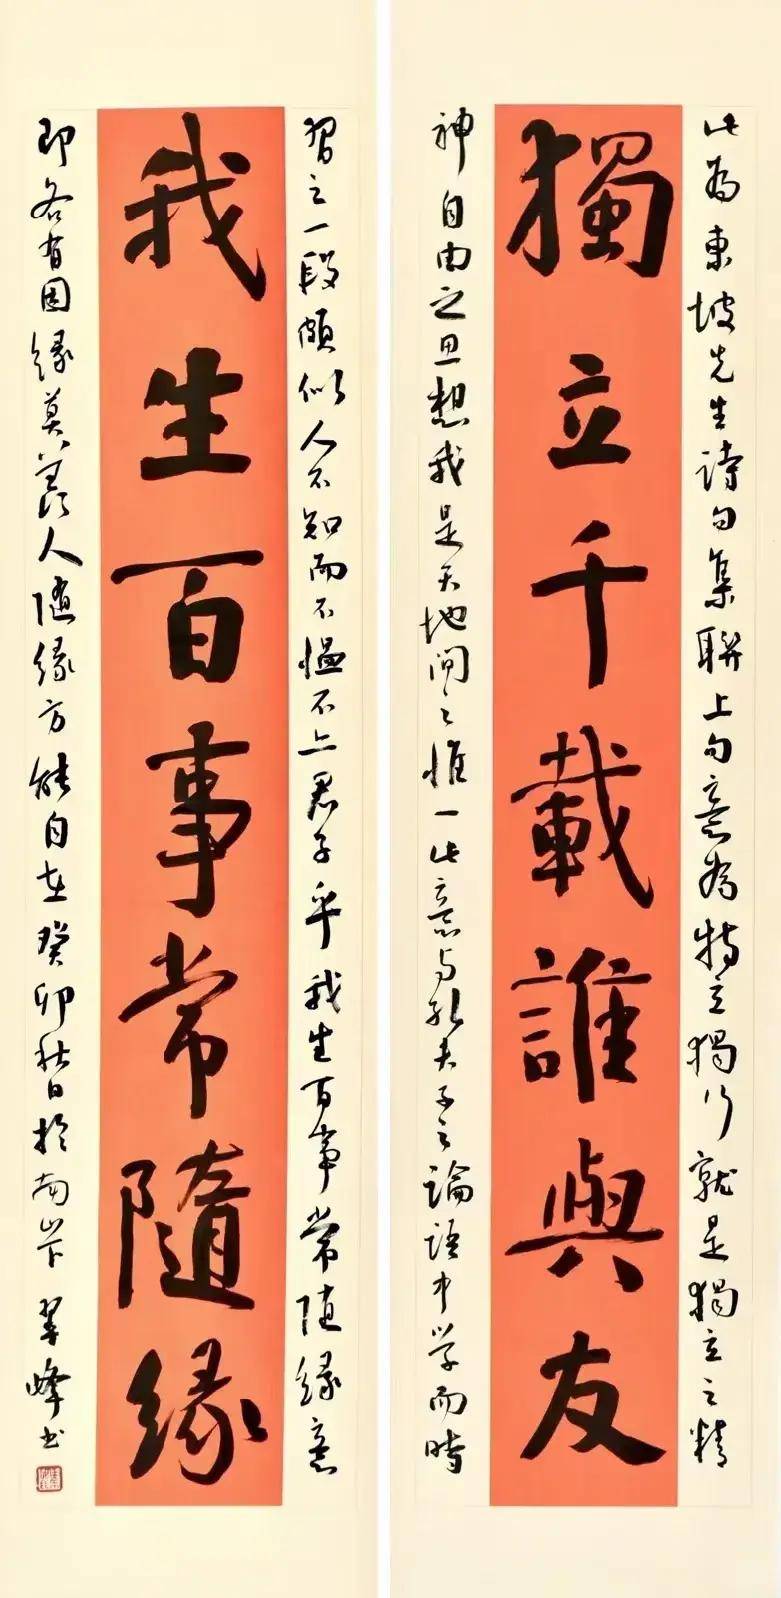 此為東坡先生詩句集聯上句意為特立獨行就是獨立之精
獨立千載誰與友
神自由之思想我是天地間之惟一此意与孔夫子之論語中學而時
習之一段頗似人不知而不慍不亦君子乎我生百事常随緣意
我生百事常隨緣
即各有因緣莫羨人随緣方能自在癸卯秋日於南 翠峰書